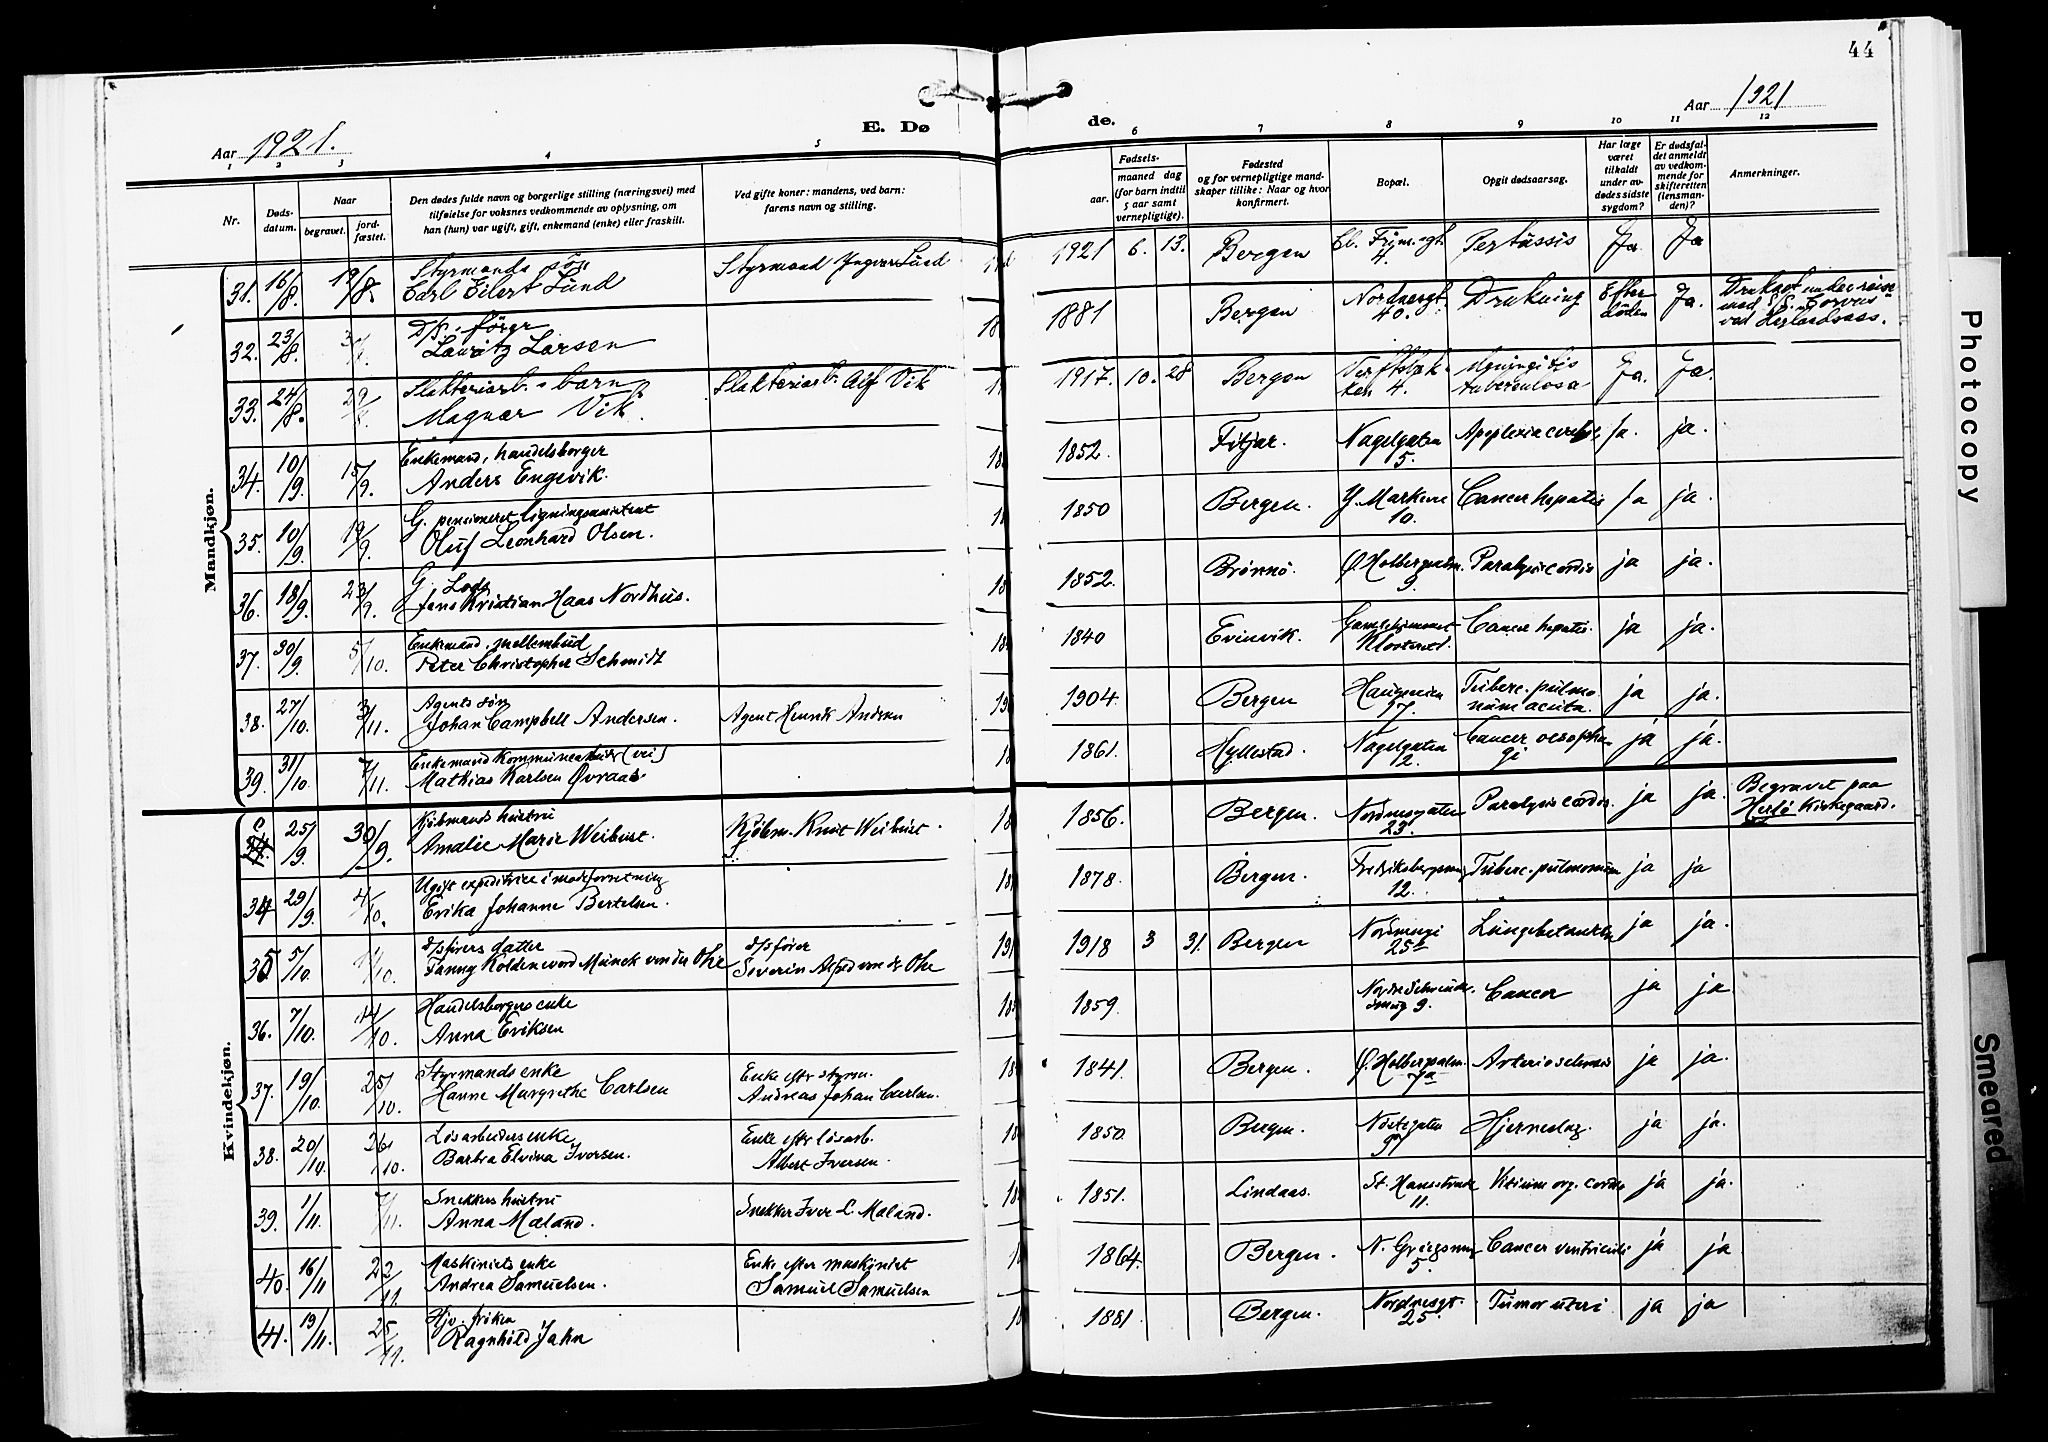 44
Aar 1921.
E. Dø
de.
Aar 1921
1 2 3 4 5
6 7 8 9 10 11 12
Nr.
Døds-
datum.
Naar
begravet.
jord-
fæstet.
Den dødes fulde navn og borgerlige stilling (næringsvei) med
tilføielse for voksnes vedkommende av oplysning, om
han (hun) var ugift, gift, enkemand (enke) eller fraskilt.
Ved gifte koner: mandens, ved barn:
farens navn og stilling.
Fødsels-
aar.
maaned dag
(for barn indtil
5 aar samt
vernepligtige).
Fødested
og for vernepligtige mand-
skaper tillike: Naar og hvor
konfirmert.
Bopæl.
Opgit dødsaarsag.
Har læge
været
tilkaldt
under av-
dødes sidste
sygdom?
Er dødsfal-
det anmeldt
av vedkom-
mende for
skifteretten
(lensman-
den)?
Anmerkninger.
Mandkjøn.
31. 16/8. 19/8. Styrmands søn
Carl Eilert Lund
Styrmand Ingvar Lund
1921 6. 13. Bergen 4. Pertussis Ja Ja
32. 23/8. Lauritz Larsen
1881 Bergen Nordnesgt. 40. Drukning Efter døden Ja. Druknet under reise
med S/S
33. 24/8. 29/8. Slakteriarb. barn
Magnar Vik.
Slakteriarb. Alf Vik
1917. 10. 28 Bergen 4. Meningitis
tuberculosa Ja. Ja.
34. 10/9. 15/9. Enkemand, handelsborger
Anders Engevik.
1852. Fitjar. Nagelgaten 5. Apoplexia Ja. ja.
35. 10/9. 19/9. G. pensioneret
Oluf Leonhard Olsen.
1850 Bergen. Y. Markevei 10. Cancer hepatis Ja ja.
36. 18/9. 23/9. G. Lods
Jens Kristian Haas Nordhus.
1852. Brønnø. 9. Paralysis cordis ja ja.
37. 30/9. 5/10. Enkemand,
Peter Christopher Schmidt
1840 Evinvik. Cancer hepatis. ja ja.
38. 27/10. 3/11. Agents søn
Johan Campbell Andersen.
Agent Henrik Andersen
1904. Bergen Haugeveien 17. Tuberc. pulmo-
num acuta. ja ja.
39. 31/10. 7/11. Enkemand (vei)
Mathias Karlsen Øvraas
1861. Hyllestad. Nagelgaten 2. Cancer oesopha-
gi ja ja.
Kvindekjøn.
25/9. 30/9. Kjøbmands hustru
Amalie Marie Weibust.
Kjøbm. Knut Weibust.
1856. Bergen. Nordnesgaten 23. Paralysis cordis. ja ja. Begravet paa
Herlø Kirkegaard.
34 29/9. 4/10. Ugift expeditrice i modeforretning
Erika Johanne Bertelsen.
1878. Bergen. 12. Tuberc. pulmonum ja ja
35 5/10. 11/10. d/sførers datter
Fanny Koldenword Munck von der Ohe
d/sfører
Severin Alfred von der Ohe
1918 3 31. Bergen 25b Lungebetændelse ja ja.
36. 7/10. 14/10. Handelsborgers enke
Anna Eriksen
1859. 9. Cancer ja ja
37. 19/10. 25/10. Styrmands enke
Hanne Margrethe Carlsen
Enke eftr styrm.
Andreas Johan Carlsen.
1841. Bergen. 7a Arteriosclerosis ja ja.
38. 20/10. 26/10. Løsarbeiders enke
Barbra Elvina Iversen.
Enke eftr løsarb.
Albert Iversen.
1850. Bergen. Nøstegaten Hjerneslag. ja ja.
39. 1/11. 7/11. Snekkers hustru
Anna Mæland.
Snekker Iver L. Mæland.
1851. Lindaas. St. Hansstræde 11. Vitium org. cordis ja ja.
40. 16/11 22/11. Maskinists enke
Andrea Samuelsen.
Enke efter maskinist
Samuel Samuelsen
1864. Bergen. N. 5. Cancer ventriculi ja ja
41. 19/11. 25/11. frøken
Ragnhild Jahn
1881 Bergen. Nordnesgt. 25. Tumor uteri ja ja
Photocopy
Smeared